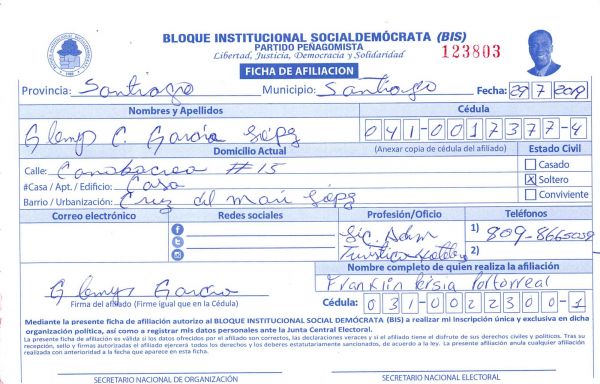 BLOQUE INSTITUCIONAL SOCIALDEMÓCRATA (BIS)
PARTIDO PEÑAGOMISTA
Libertad, Justicia, Democracia y Solidaridad
123803
FICHA DE AFILIACION
Provincia: Santiago Municipio: Santiago Fecha: 29 7 2019
Nombres y Apellidos Cédula
Glenys C. García López 041-0017377-4
Domicilio Actual (Anexar copia de cédula del afiliado) Estado Civil
Calle: #15 Casado
#Casa / Apt. / Edificio: Casa X Soltero
Barrio / Urbanización: Cruz del Mari López Conviviente
Correo electrónico Redes sociales Profesión/Oficio Teléfonos
Lic. Adm 1) 809-8665039
2)
Nombre completo de quien realiza la afiliación
Franklin Portorreal
Glenys García
Firma del afiliado (Firme igual que en la Cédula) Cédula: 031-0022300-1
Mediante la presente ficha de afiliación autorizo al BLOQUE INSTITUCIONAL SOCIAL DEMÓCRATA (BIS) a realizar mi inscripción única y exclusiva en dicha
organización política, así como a registrar mis datos personales ante la Junta Central Electoral.
La presente ficha de afiliación es válida si los datos ofrecidos por el afiliado son correctos, las declaraciones veraces y si el afiliado tiene el disfrute de sus derechos civiles y políticos. Tras su
recepción, sello y firmas autorizadas el afiliado ejercerá todos los derechos y deberes estatutariamente sancionados, de acuerdo a la ley. La presente afiliación anula cualquier afiliación
realizada con anterioridad a la fecha que aparece en esta ficha.
SECRETARIO NACIONAL DE ORGANIZACIÓN SECRETARIO NACIONAL ELECTORAL